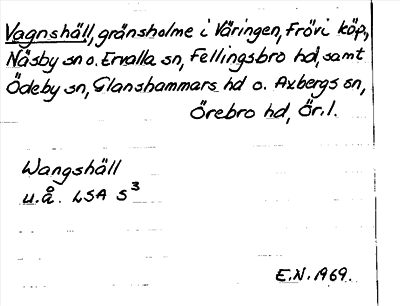 Vagnshäll, gränsholme i Väringen, Frövi köp.,
Näsby sn o. Ervalla sn, Fellingsbro hd, samt
Ödeby sn, Glanshammars hd o. Axbergs sn,
Örebro hd, Ör. l.
Wangshäll
u.å. LSA S³
E.N. 1969.